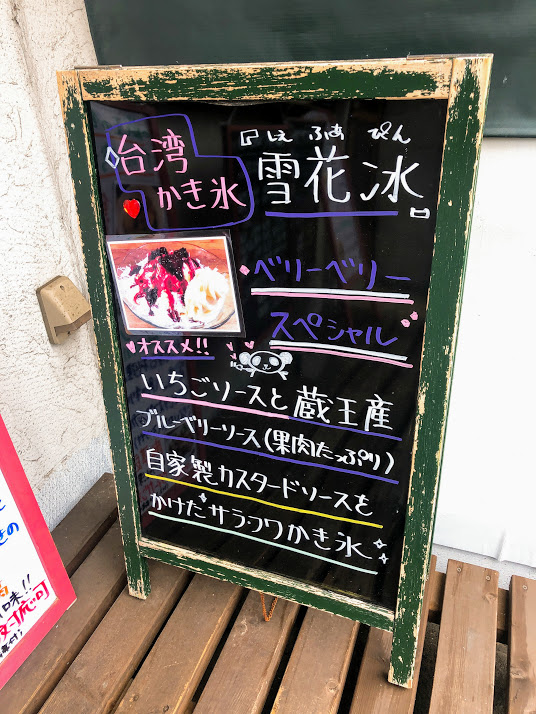 台湾
かき氷
しぇ ふぁ ぴん
『雪花冰』
ベリーベリー
スペシャル
オススメ!!
いちごソースと蔵王産
ブルーベリーソース(果肉たっぷり)
自家製カスタードソースを
かけたサラフワかき氷
味!!
対応可